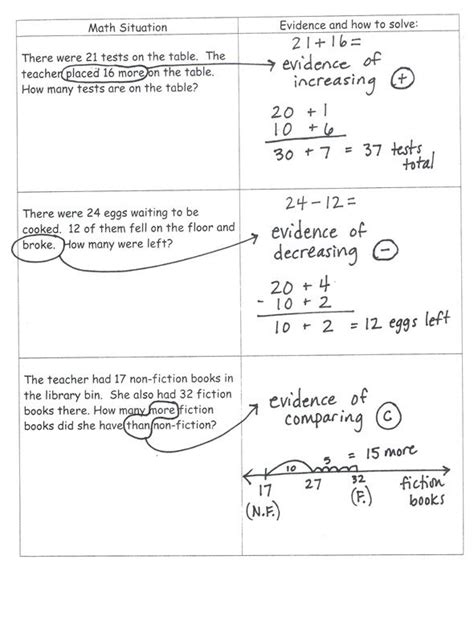 Math Situation
Evidence and how to solve:
There were 21 tests on the table. The
teacher placed 16 more on the table.
How many tests are on the table?
21+16=
evidence of
increasing +
20 + 1
10 + 6
30 + 7 = 37 tests
total
There were 24 eggs waiting to be
cooked. 12 of them fell on the floor and
broke. How many were left?
24-12=
evidence of
decreasing -
20 + 4
- 10 + 2
10 + 2 = 12 eggs left
The teacher had 17 non-fiction books in
the library bin. She also had 32 fiction
books there. How many more fiction
books did she have than non-fiction?
evidence of
comparing C
10 5 = 15 more
17 27 32 fiction
(N.F.) (F.) books